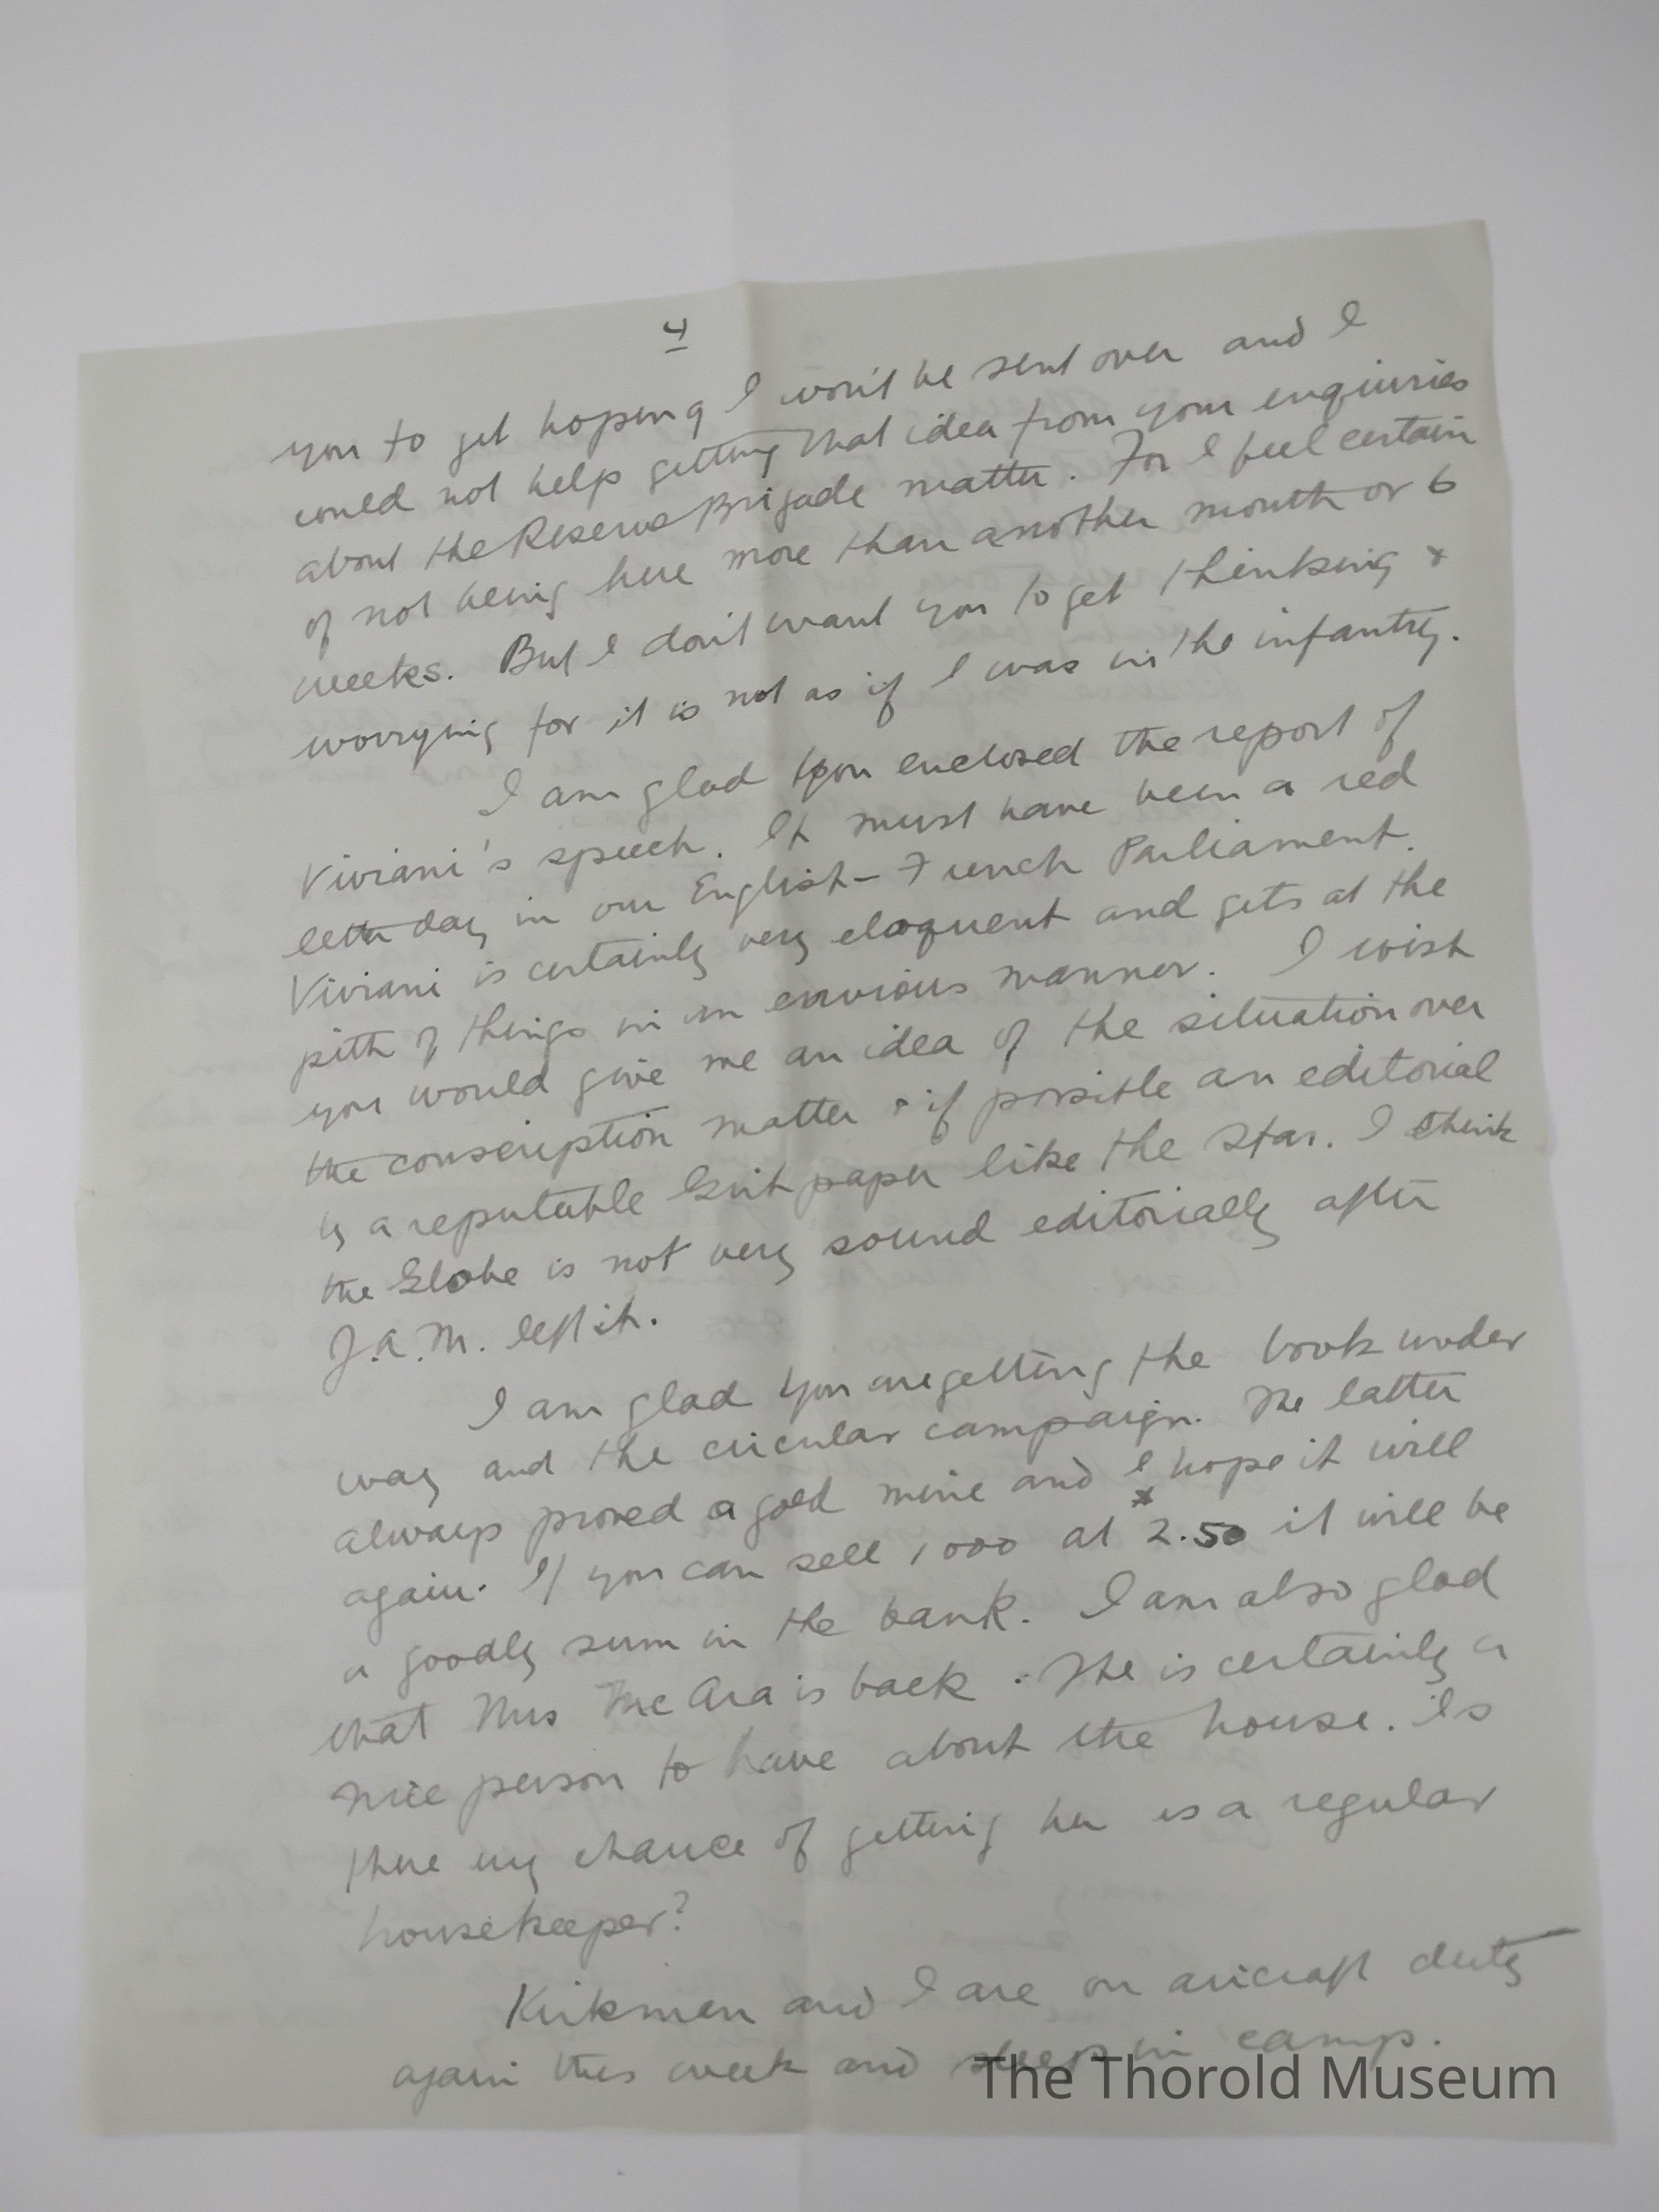 4
you to get hoping I won't be sent over and I
could not help getting that idea from your enquiries
about the Reserve Brigade matter. For I feel certain
of not being here more than another month or 6
weeks. But I don't want you to get thinking &
worrying for it is not as if I was in the infantry.
I am glad you enclosed the report of
Viviani's speech. It must have been a red
letter day in our English-French Parliament.
Viviani is certainly very eloquent and gets at the
pith of things in an envious manner. I wish
you would give me an idea of the situation over
the conscription matter & if possible an editorial
by a reputable Grit paper like the Star. I think
the Globe is not very sound editorially after
J.A.M. left it.
I am glad you are getting the book under
way and the circular campaign. The latter
always proved a gold mine and I hope it will
again. If you can sell 1000 at 2.50 it will be
a goodly sum in the bank. I am also glad
that Mrs McAra is back. She is certainly a
nice person to have about the house. Is
there any chance of getting her as a regular
housekeeper?
Kirkman and I are on aircraft duty
again this week and sleep in camp.
The Thorold Museum